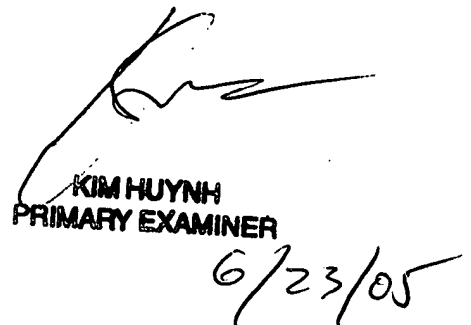 KIM HUYNH
PRIMARY EXAMINER
6/23/05